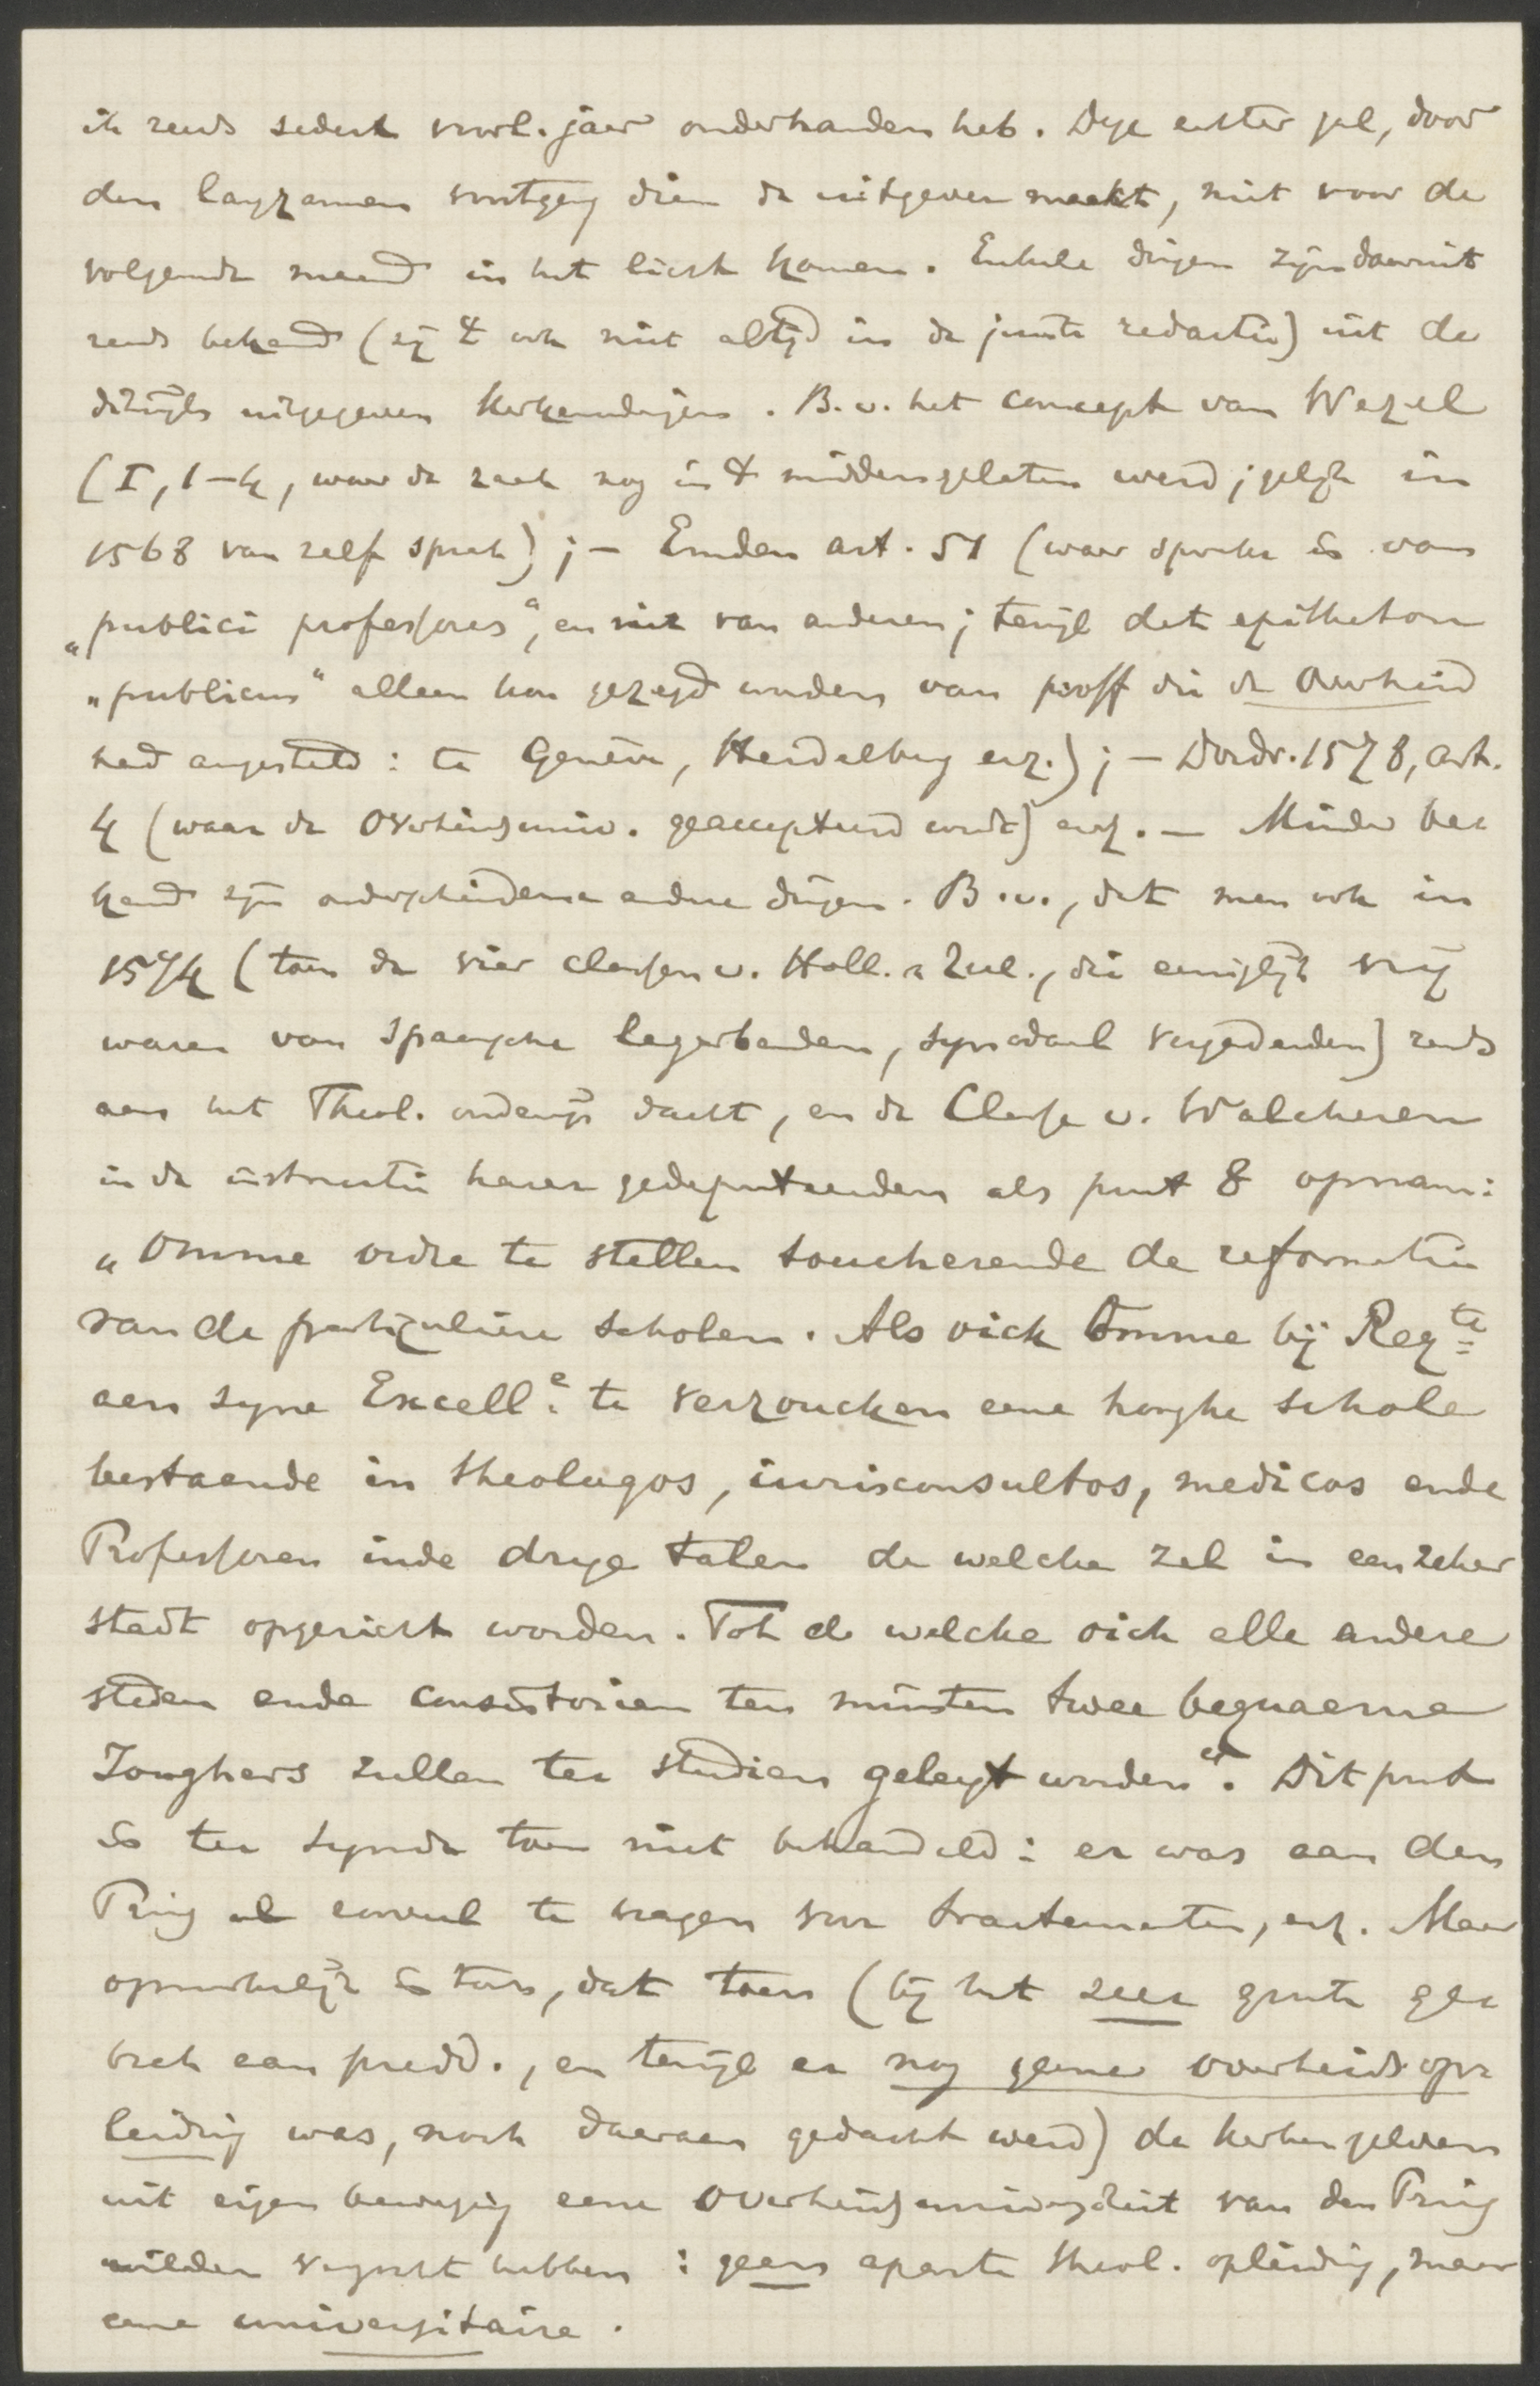 ik reeds sedert voorl. jaar onderhanden heb. Deze echter zal, door
den langzamen voortgang dien de uitgever maakt, niet voor de
volgende maand in het licht komen. Enkele dingen zijn daaruit
reeds bekend (zij 't ook niet altijd in de juiste redactie) uit de
dikwijls uitgegeven Kerkenordeningen. B.v. het concept van Wezel
(I, 1-4, waar de zaak nog in 't midden gelaten werd; gelijk in
1568 van zelf sprak); — Emden art. 51 (waar sprake is van
„publici professores“, en niet van anderen; terwijl dat epitheton
„publicus“ alleen kon gezegd worden van proff die de Overheid
had aangesteld: te Genève, Heidelberg enz.); — Dordr. 1578, art.
4 (waar de Overheidsuniv. geaccepteerd wordt) enz. — Minder be-
kend zijn onderscheidene andere dingen. B.v., dat men ook in
1574 (toen de vier classen v. Holl. & Zeel., die eenigszins vrij
waren van Spaansche legerbenden, synodaal vergaderden) reeds
aan het Theol. onderwijs dacht, en de Classe v. Walcheren
in de instructie harer gedeputeerden als punt 8 opnam:
„Omme ordre te stellen toucherende de reformatie
van de particuliere scholen. Als oick omme bij Reqte
aen syne Excelle te verzoucken eene hooghe schole
bestaende in theologos, iurisconsultos, medicos ende
Professoren inde drye talen de welcke zal in een zeker
stadt opgericht worden. Tot de welcke oick alle andere
steden ende consistorien ten minsten twee bequaeme
Jonghers zullen ter studien geleyt worden“. Dit punt
is ter synode toen niet behandeld: er was aan den
Prins al zooveel te vragen voor tractementen, enz. Maar
opmerkelijk is toch, dat toen (bij het zeer groote ge-
brek aan predd., en terwijl er nog geene overheidsop-
leiding was, noch daaraan gedacht werd) de kerken zelven
uit eigen beweging eene Overheidsuniversiteit van den Prins
wilden verzocht hebben: geen aparte theol. opleiding, maar
eene universitaire.